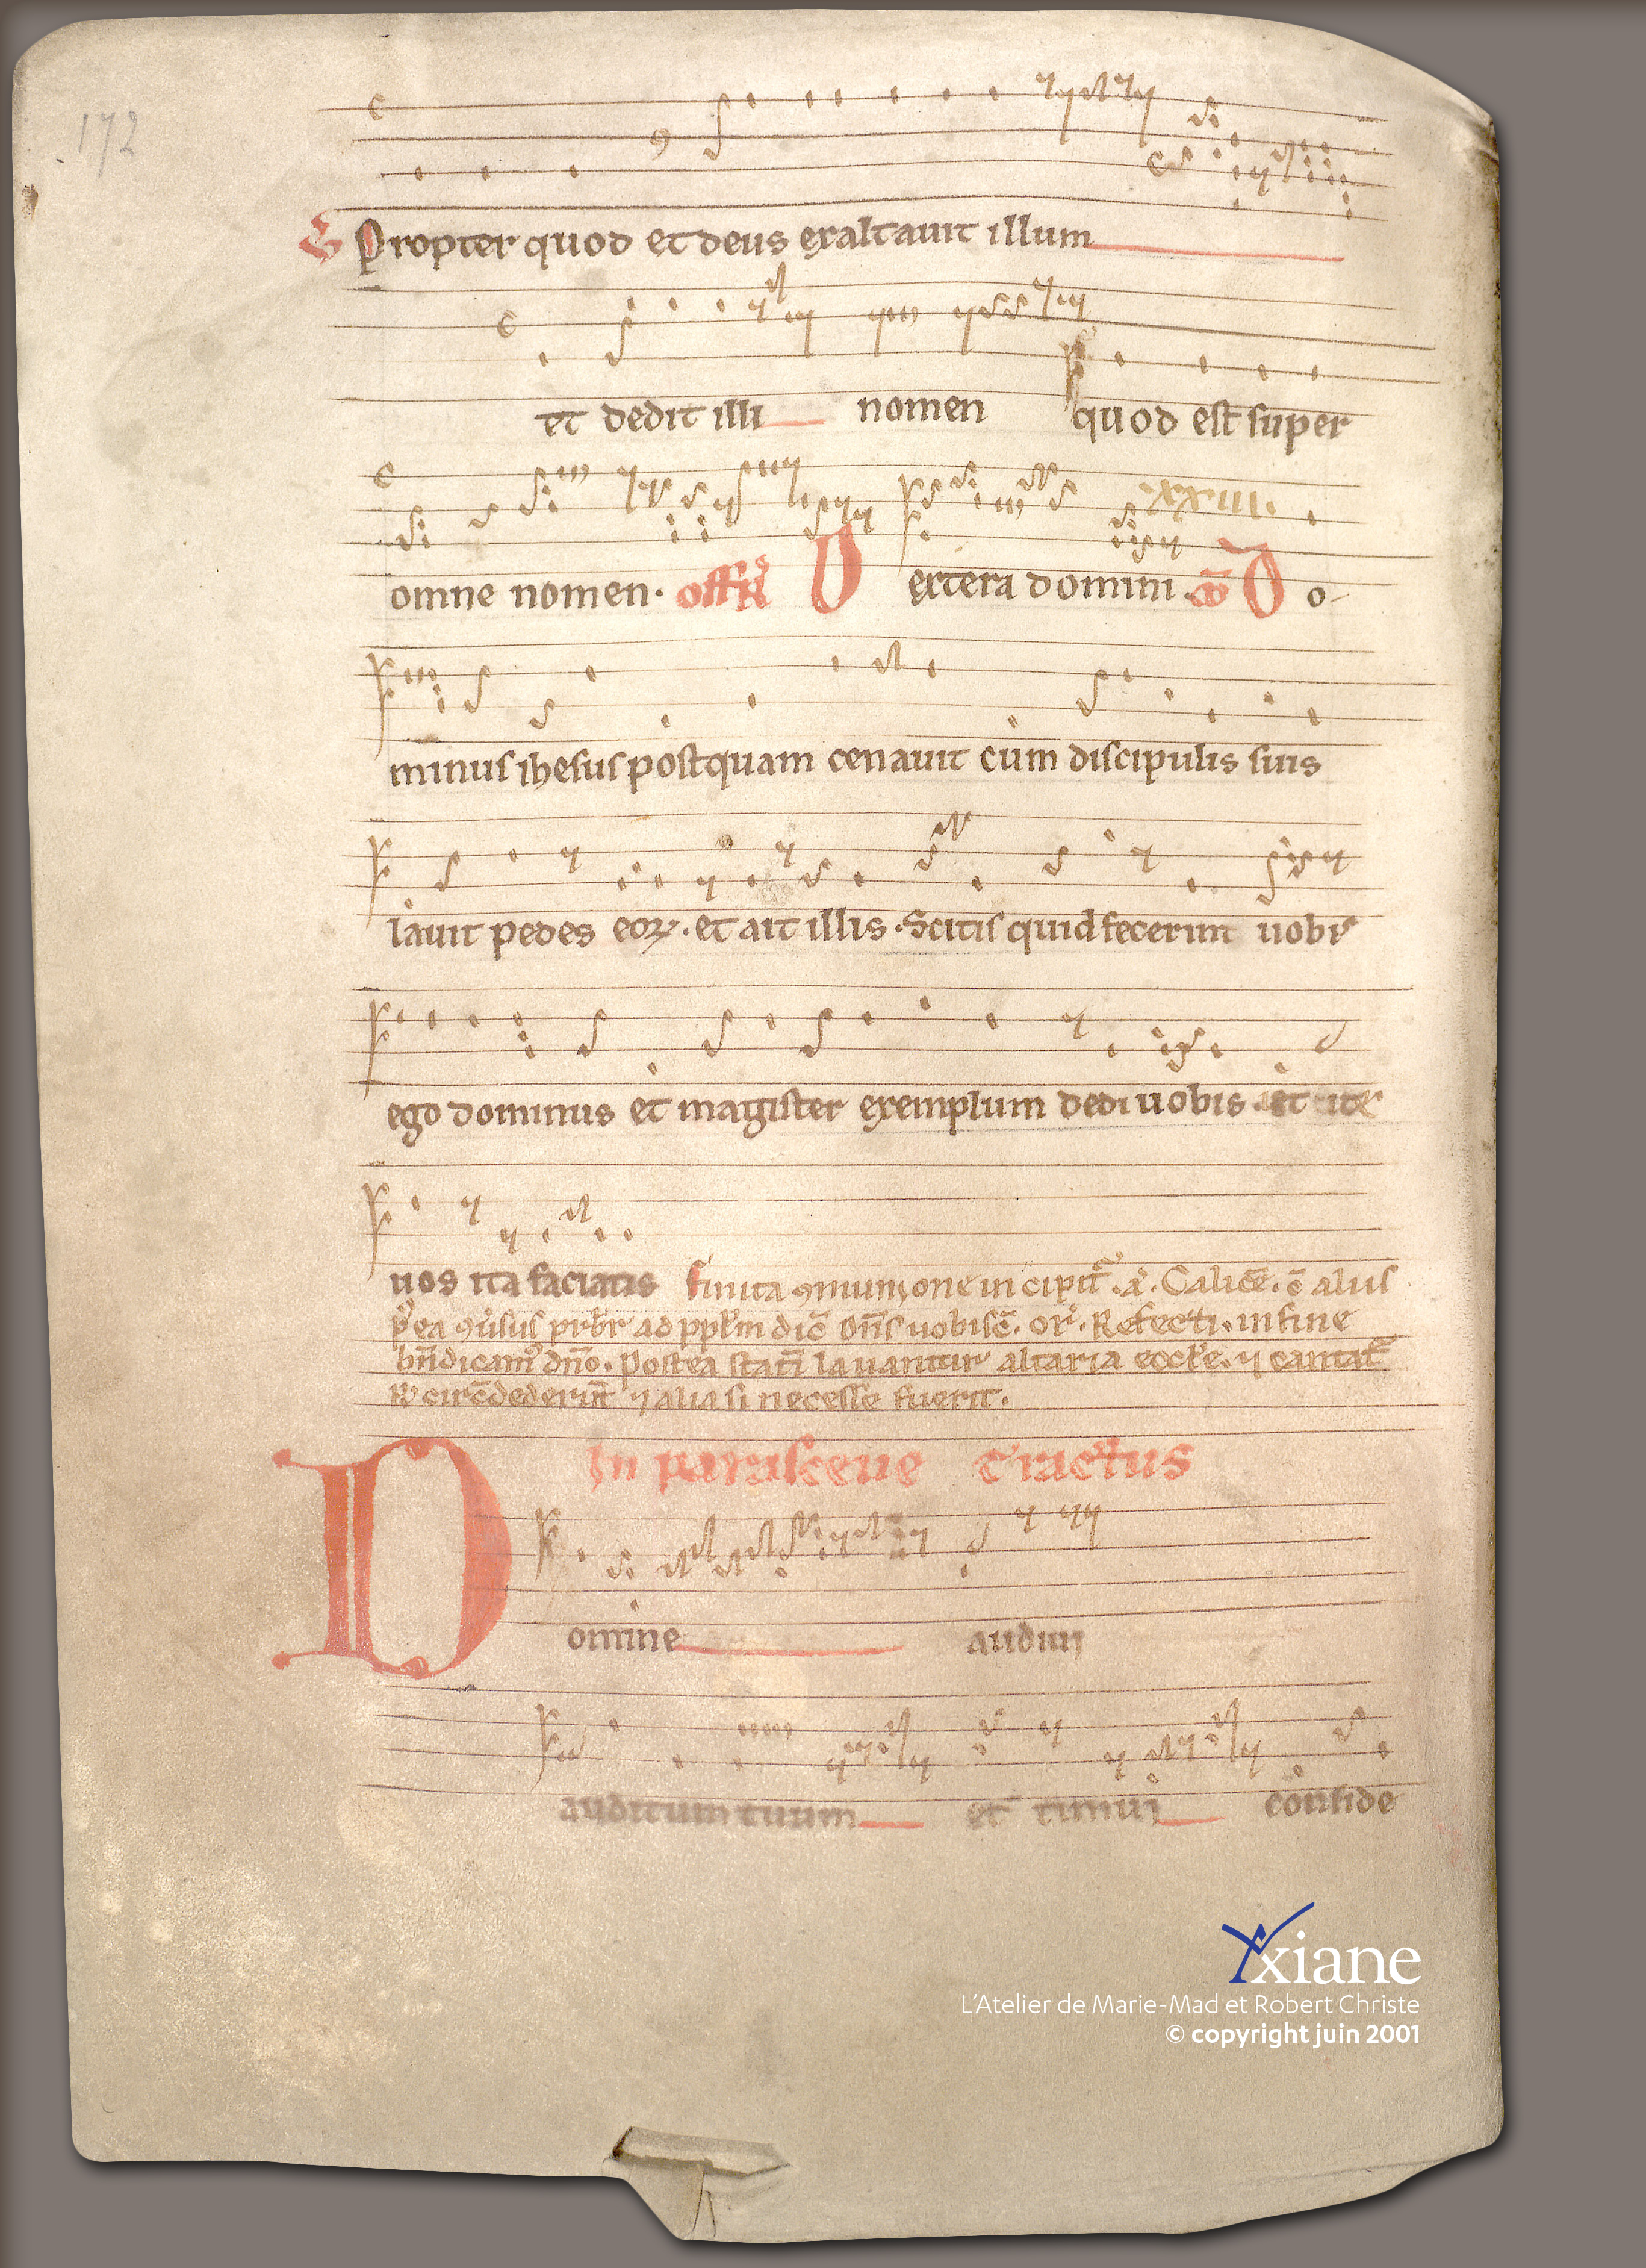 172
Propter quod et deus exaltauit illum
et dedit illi nomen quod est super
.xxiii.
omne nomen. off D extera domini. co D o-
minus ihesus postquam cenauit cum discipulis suis
lauit pedes eoꝝ. et ait illis. Scitis quid fecerim uobis
ego dominus et magister exemplum dedi uobis. et
uos ita faciatis finita ꝯmunione incipit̄. a. Calicē. ē aliis
p̄ea ꝯuersus pr̄br ad ppl̄m dic̄ Dn̄s uobisc̄. or̄. Refecti. in fine
bn̄dicam dn̄o. Postea stati lauantur altaria eccl̄e. ⁊ cantat̄
R circūdederunt ⁊ alia si necesse fuerit.
In parasceue Tractus
D omine audiui
auditum tuum et timui conside
Yxiane
L'Atelier de Marie-Mad et Robert Christe
© copyright juin 2001